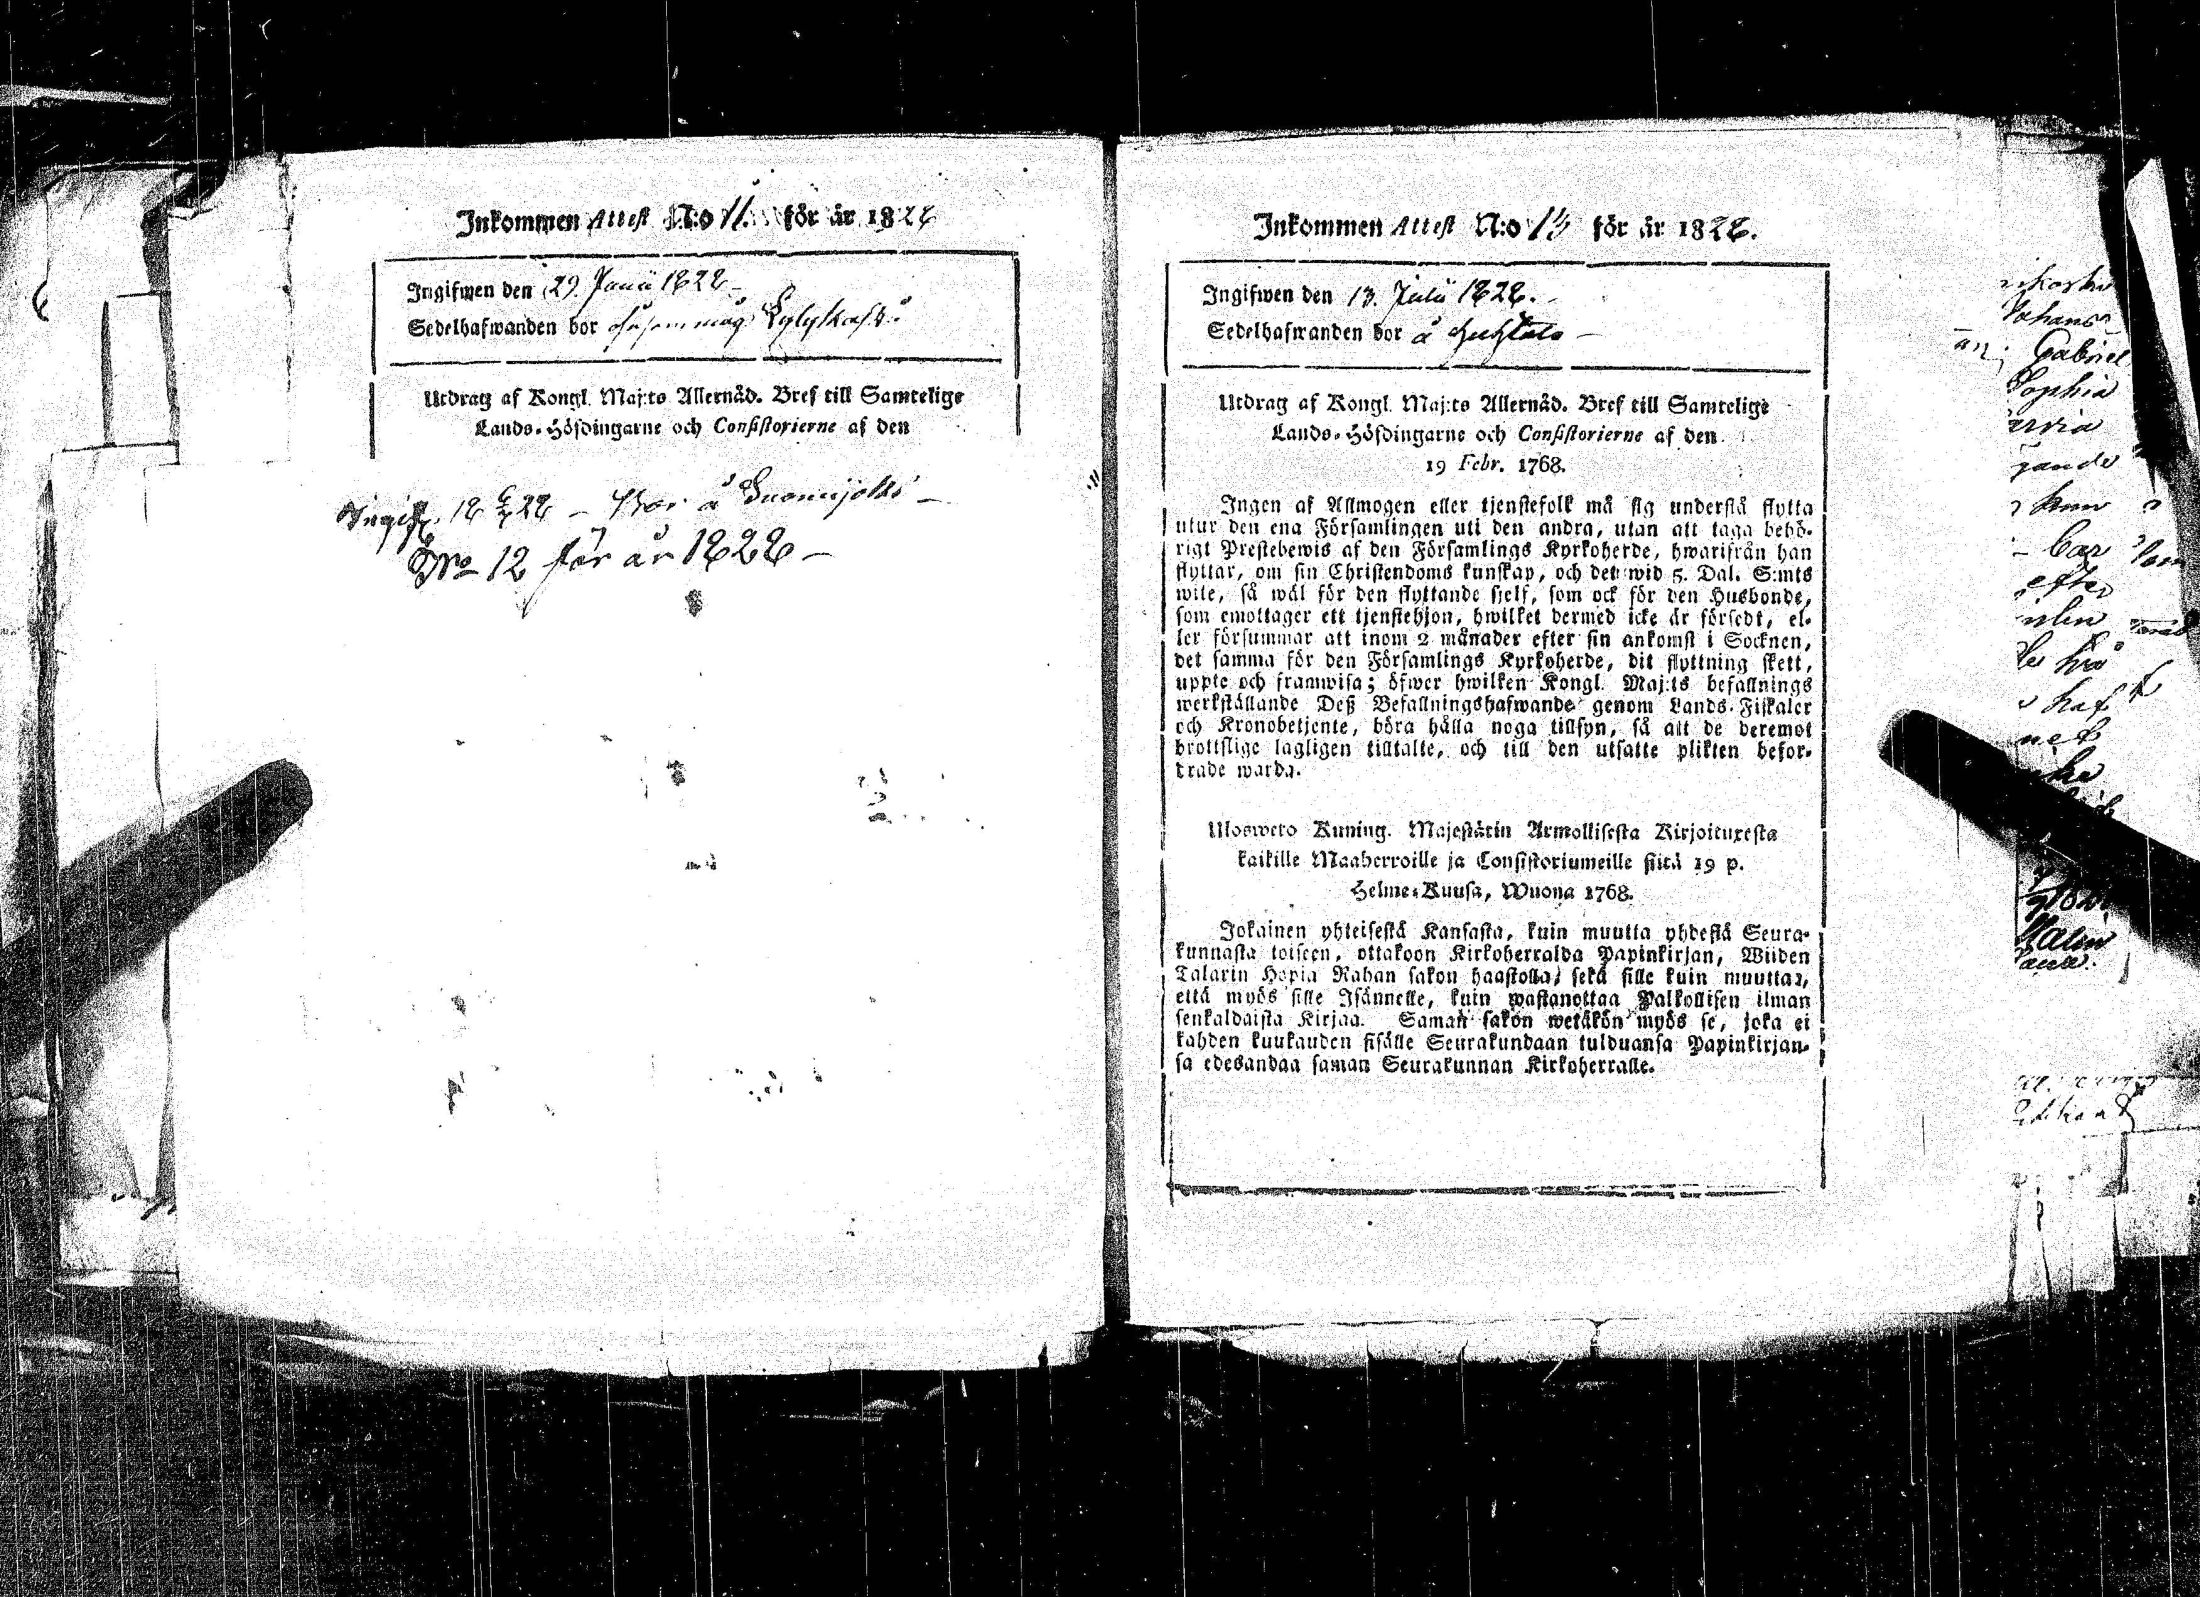 Inkommen Attest N:o 11. för år 1822
Ingifwen den 29. Junii 1822 –
Sedelhafwanden bor
Utdrag af Kongl. Maj:ts Allernåd. Bref till Samtelige
Lands-Höfdingarne och Consistorierne af den
Ingif. 18 6/7 22 – Bor å Suomijoki –
No 12 för år 1822 –
Inkommen Attest N:o 13 för år 1822.
Ingifwen den 13. Julii 1822. –
Sedelhafwanden bor å Huhtala –
Utdrag af Kongl. Maj:ts Allernåd. Bref till Samtelige
Lands-Höfdingarne och Consistorierne af den
19 Febr. 1768.
Ingen af Allmogen eller tjenstefolk må sig understå flytta
utur den ena Församlingen uti den andra, utan att taga behö-
rigt Prestebewis af den Församlings Kyrkoherde, hwarifrån han
flyttar, om sin Christendoms kunskap, och det wid 5. Dal. S:mts
wite, så wäl för den flyttande sjelf, som ock för den Husbonde,
som emottager ett tjenstehjon, hwilket dermed icke är försedt, el-
ler försummar att inom 2 månader efter sin ankomst i Socknen,
det samma för den Församlings Kyrkoherde, dit flyttning skett,
uppte och framwisa; öfwer hwilken Kongl. Maj:ts befallnings
werkställande Deß Befallningshafwande genom Lands-Fiskaler
och Kronobetjente, böra hålla noga tillsyn, så att de deremot
brottslige lagligen tilltalte, och till den utsatte plikten befor-
drade warda.
Ulosweto Kuning. Majestätin Armollisesta Kirjoituxesta
kaikille Maaherroille ja Consistoriumeille siitä 19 p.
Helme-Kuusa, Wuona 1768.
Jokainen yhteisestä Kansasta, kuin muutta yhdestä Seura-
kunnasta toiseen, ottakoon Kirkoherralda Papinkirjan, Wiiden
Talarin Hopia Rahan sakon haastolla, sekä sille kuin muuttaa,
että myös sille Isännelle, kuin wastanottaa Palkollisen ilman
senkaldaista Kirjaa. Saman sakon wetäkön myös se, joka ei
kahden kuukauden sisälle Seurakundaan tulduansa Papinkirjan-
sa edesandaa saman Seurakunnan Kirkoherralle.
Gabriel
Sophia